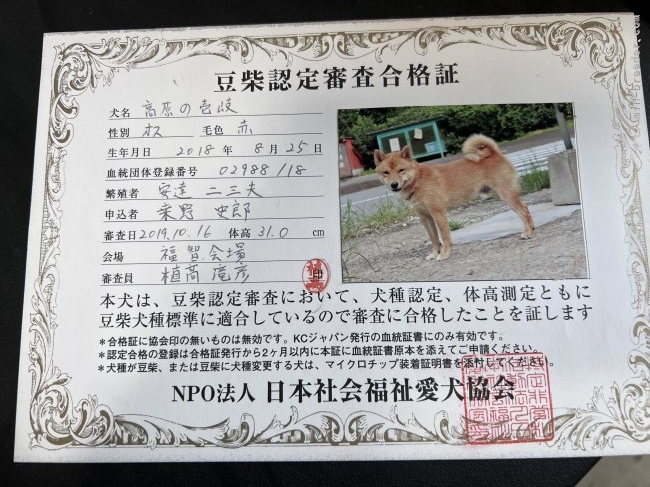 豆柴認定審査合格証
犬名 高原の壱岐
性別 オス 毛色 赤
生年月日 2018 年 8 月 25 日
血統団体登録番号 02988/18
繁殖者 安達 二三夫
申込者 史郎
審査日 2019.10.16 体高 31.0 cm
会場 福智会場
審査員 植髙 彦
印
本犬は、豆柴認定審査において、犬種認定、体高測定ともに
豆柴犬種標準に適合しているので審査に合格したことを証します
*合格証に協会印の無いものは無効です。KCジャパン発行の血統証書にのみ有効です。
*認定合格の登録は合格証発行から2ヶ月以内に本証に血統証書原本を添えてご申請ください。
*犬種が豆柴、または豆柴に犬種変更する犬は、マイクロチップ装着証明書を添付してください。
NPO法人 日本社会福祉愛犬協会